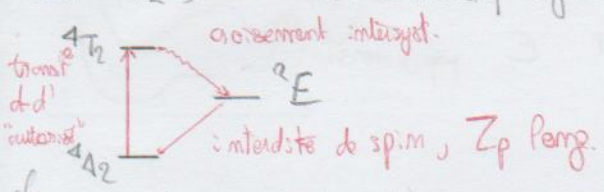 ⁴T₂ croisement intersyst.
transit°
d-d
"autorisée"
²E
interdite de spin, τp long.
⁴A₂